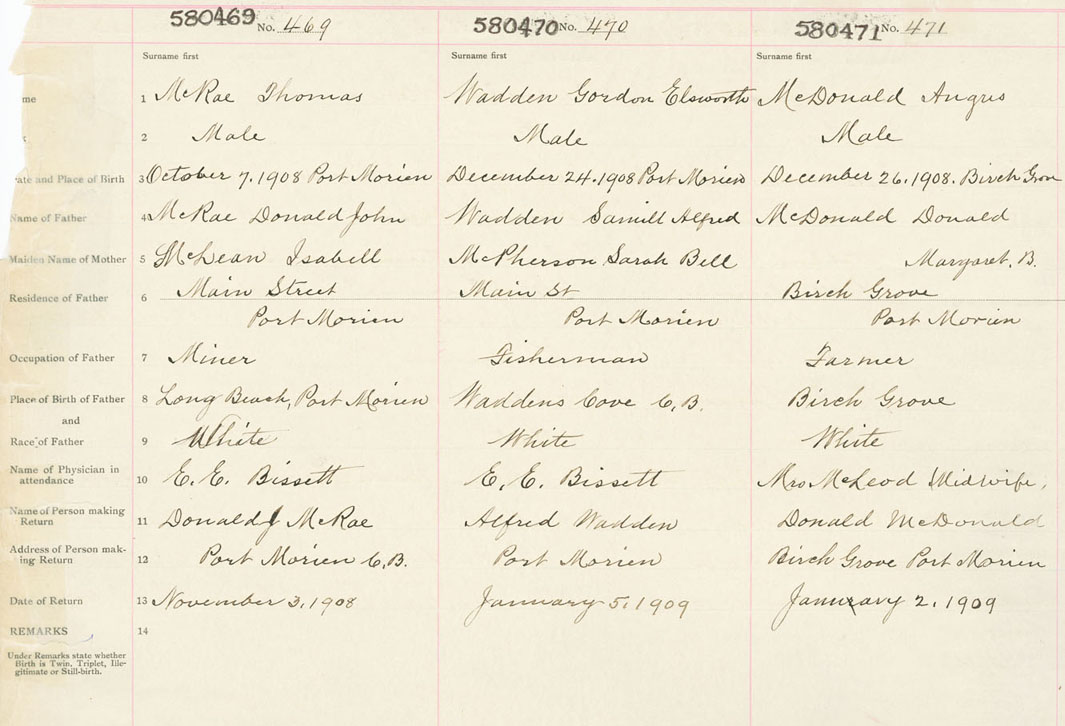 580469 No. 469 580470 No. 470 580471 No. 471
Surname first Surname first Surname first
me 1 McRae Thomas Wadden Gordon Elsworth McDonald Angus
2 Male Male Male
ate and Place of Birth 3 October 7. 1908 Port Morien December 24. 1908 Port Morien December 26. 1908. Birch Grove
Name of Father 4 McRae Donald John Wadden Alfred McDonald Donald
Maiden Name of Mother 5 McLean Isabell McPherson Sarah Bell Margaret. B.
Residence of Father 6 Main Street Main St Birch Grove
Port Morien Port Morien Port Morien
Occupation of Father 7 Miner Fisherman Farmer
Place of Birth of Father 8 Long Beach, Port Morien Waddens Cove C, B. Birch Grove
and
Race of Father 9 White White White
Name of Physician in
attendance 10 E. E. Bissett E. E. Bissett Mrs McLeod Midwife,
Name of Person making
Return 11 Donald J McRae Alfred Wadden Donald McDonald
Address of Person mak-
ing Return 12 Port Morien C, B. Port Morien Birch Grove Port Morien
Date of Return 13 November 3. 1908 January 5. 1909 January 2. 1909
REMARKS 14
Under Remarks state whether
Birth is Twin, Triplet, Ille-
gitimate or Still-birth.